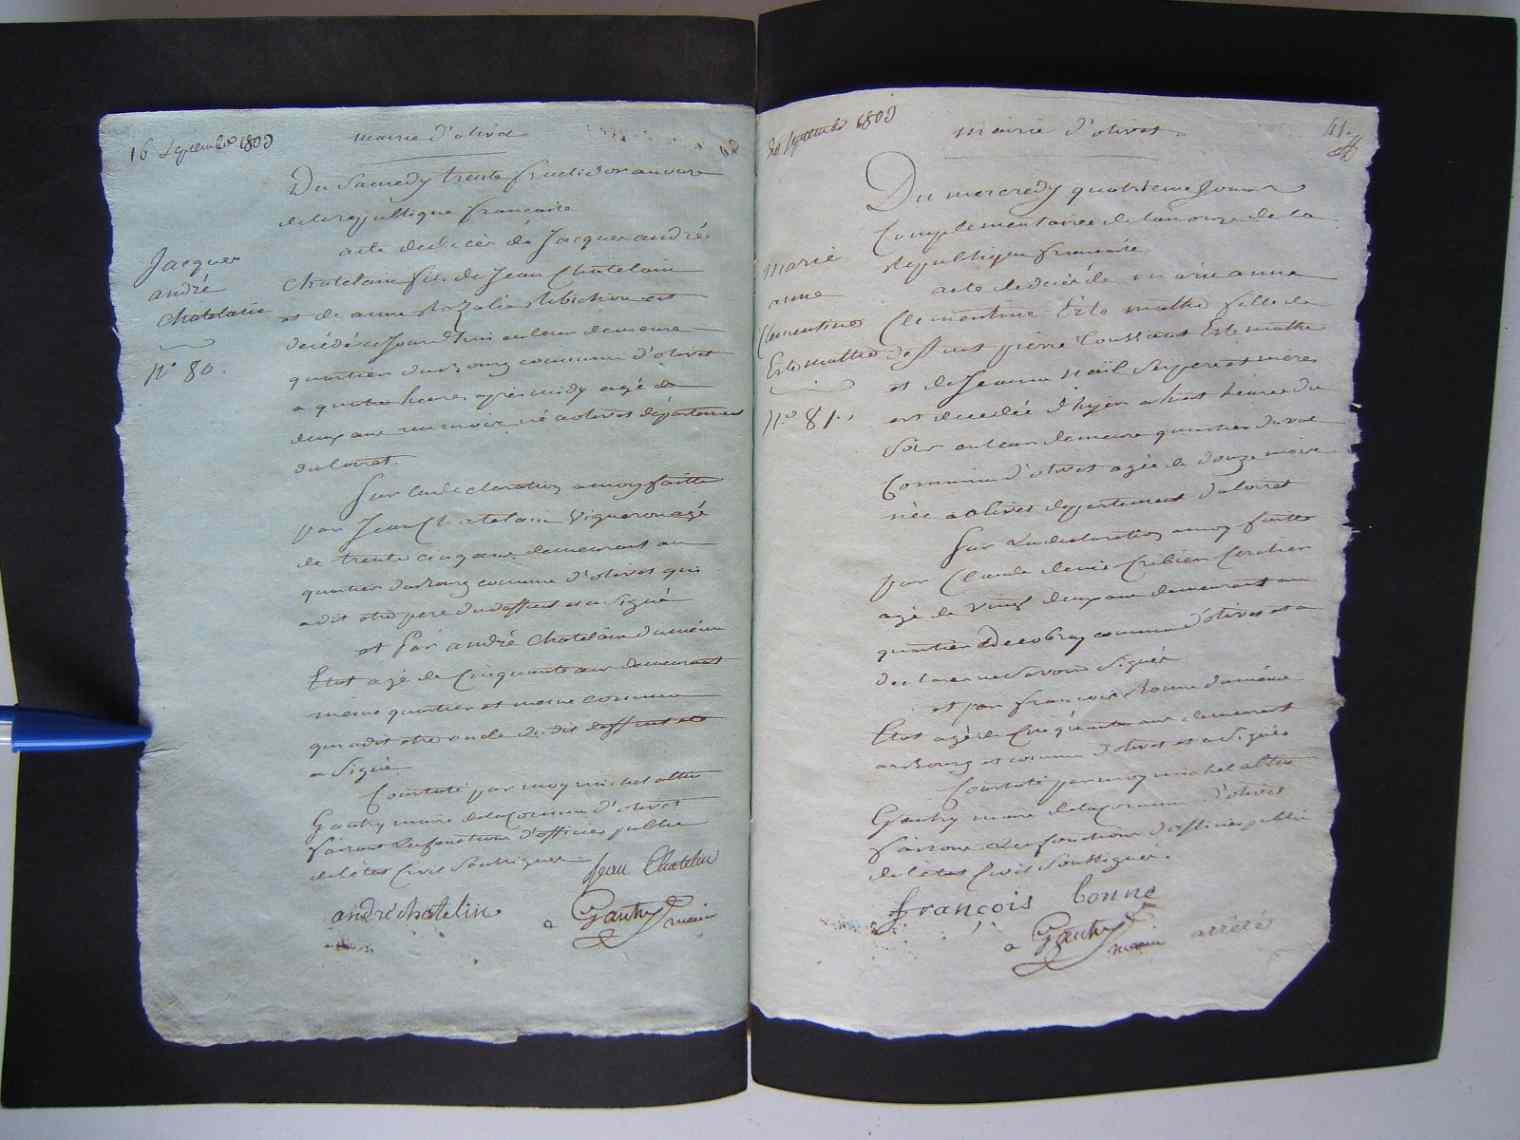 16 Septembre 1803
mairie d'olivet
Du Samedy trente fructidor an onze
de la republique francaise
Jacques
andré
Chatelain
N° 80.
acte de decès de Jacques andré
Chatelain fils de Jean Chatelain
et de anne Rozalie
decédé ce Jourd'hui en leur demeure
quartier du Bourg commune d'olivet
a quatre heures après midy agé de
deux ans né a olivet département
du loiret.
Sur la declaration a moy faitte
par Jean Chatelain Vigneron agé
de trente cinq ans demeurant au
quartier du Bourg commune d'olivet qui
a dit etre pere du deffunt et a Signé
et par andré Chatelain du même
Etat agé de Cinquante ans demeurant
même quartier et même commune
qui a dit etre oncle du dit deffunt et
a Signé
Constaté par moy michel
Gautry maire de la commune d'olivet
faisant les fonctions d'officier public
de l'état Civil Soussigné
Jean Chatelin
andré chatelin
Gautry
maire
30 Septembre 1803
mairie d'olivet
41
Du mercredy quatrieme Jour
Complementaire de l'an onze de la
Republique francaise
Marie
anne
Clementine
N° 81.
acte de decès de marie anne
Clementine fille de
deffunt pierre Toussaint
et de Jeanne Ses pere et mere
est decedée d'hyer a huit heures du
Soir en leur demeure quartier du val
Commune d'olivet agée de douze mois
née a olivet departement du loiret
Sur la declaration a moy faitte
par Claude denis
agé de vingt deux ans demeurant au
quartier commune d'olivet et a
declaré ne Savoir Signer
et par francois Bonne du même
Etat agé de Cinquante ans demeurant
au Bourg et commune d'olivet et a Signé
Constaté par moy michel
Gautry maire de la commune d'olivet
faisant les fonctions d'officier public
de l'état Civil Soussigné.
françois bonne
Gautry
maire
arrêté